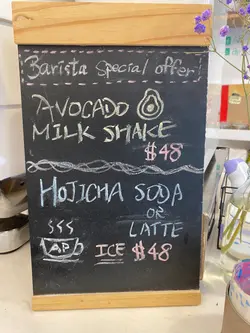 Barista special offer
AVOCADO
MILK SHAKE
$48
HOJICHA SODA
OR
LATTE
ICE $48